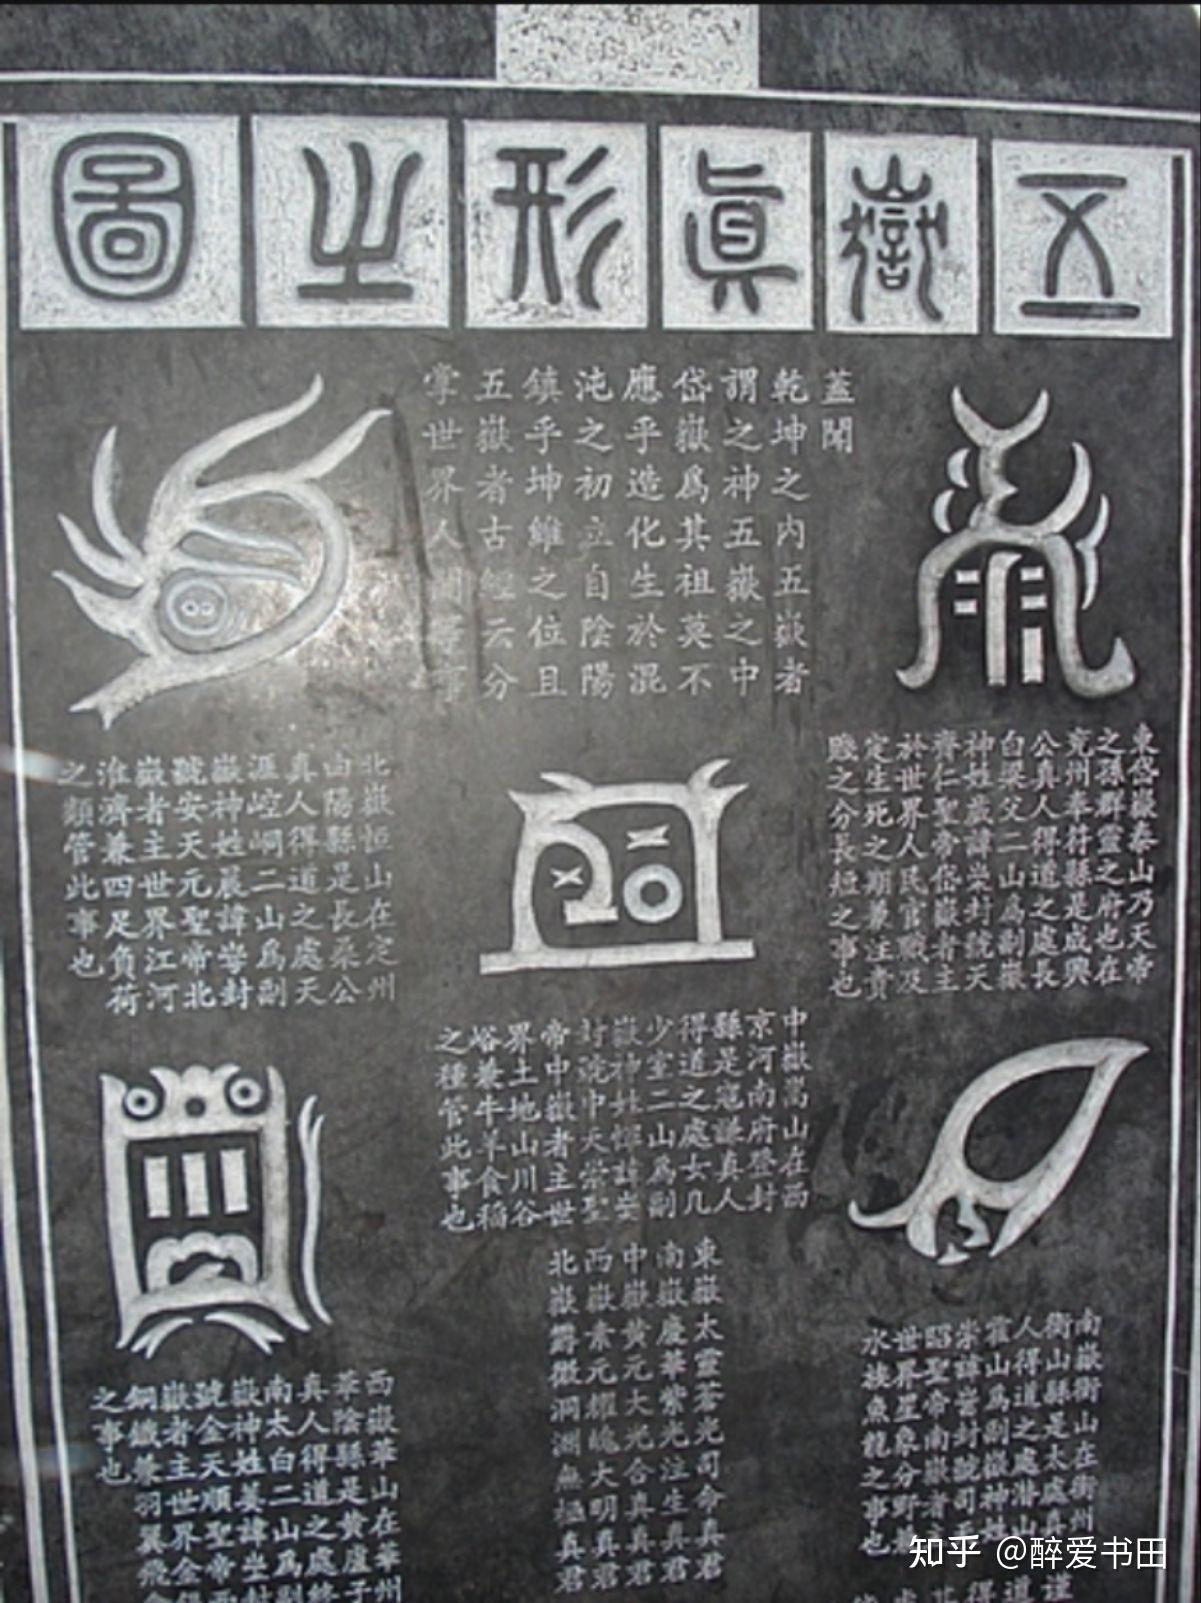 五嶽眞形之圖
蓋聞
乾坤之内五嶽者
謂之神五嶽之中
岱嶽爲其祖莫不
應乎造化生於混
沌之初立自陰陽
鎮乎坤維之位且
五嶽者古經云分
掌世界人間等事
東岱嶽泰山乃天帝
之孫群靈之府也在
兗州奉符縣是成興
公真人得道之處長
白梁父二山爲副嶽
神姓歲諱崇封號天
齊仁聖帝岱嶽者主
於世界人民官職及
定生死之期兼注貴
賤之分長短之事也
北嶽恒山在定州
山陽縣是長桑公
真人得道之處天
涯崆峒二山爲副
嶽神姓晨諱崿封
號安天元聖帝北
嶽者主世界江河
淮濟兼四足負荷
之類管此事也
中嶽嵩山在西
京河南府登封
縣是寇謙真人
得道之處女几
少室二山爲副
嶽神姓惲諱
封號中天崇聖
帝中嶽者主世
界土地山川谷
峪兼牛羊食稻
之種管此事也
南嶽衡山在衡州
衡山縣是太處真
人得道之處潛山
霍山爲副嶽神姓
崇諱嵤封號司天
昭聖帝南嶽者
世界星象分野兼
水族魚龍之事也
西嶽華山在華州
華陰縣是黃盧子
真人得道之處終
南太白二山爲副
嶽神姓諱封
號金天順聖帝西
嶽者主世界金
銅鐵兼羽翼飛
之事也
東嶽太靈蒼光司命真君
南嶽慶華紫光注生真君
中嶽黃元大光合真真君
西嶽素元耀魄大明真君
北嶽鬱微洞淵無極真君
謹
道
得
知乎 @醉爱书田